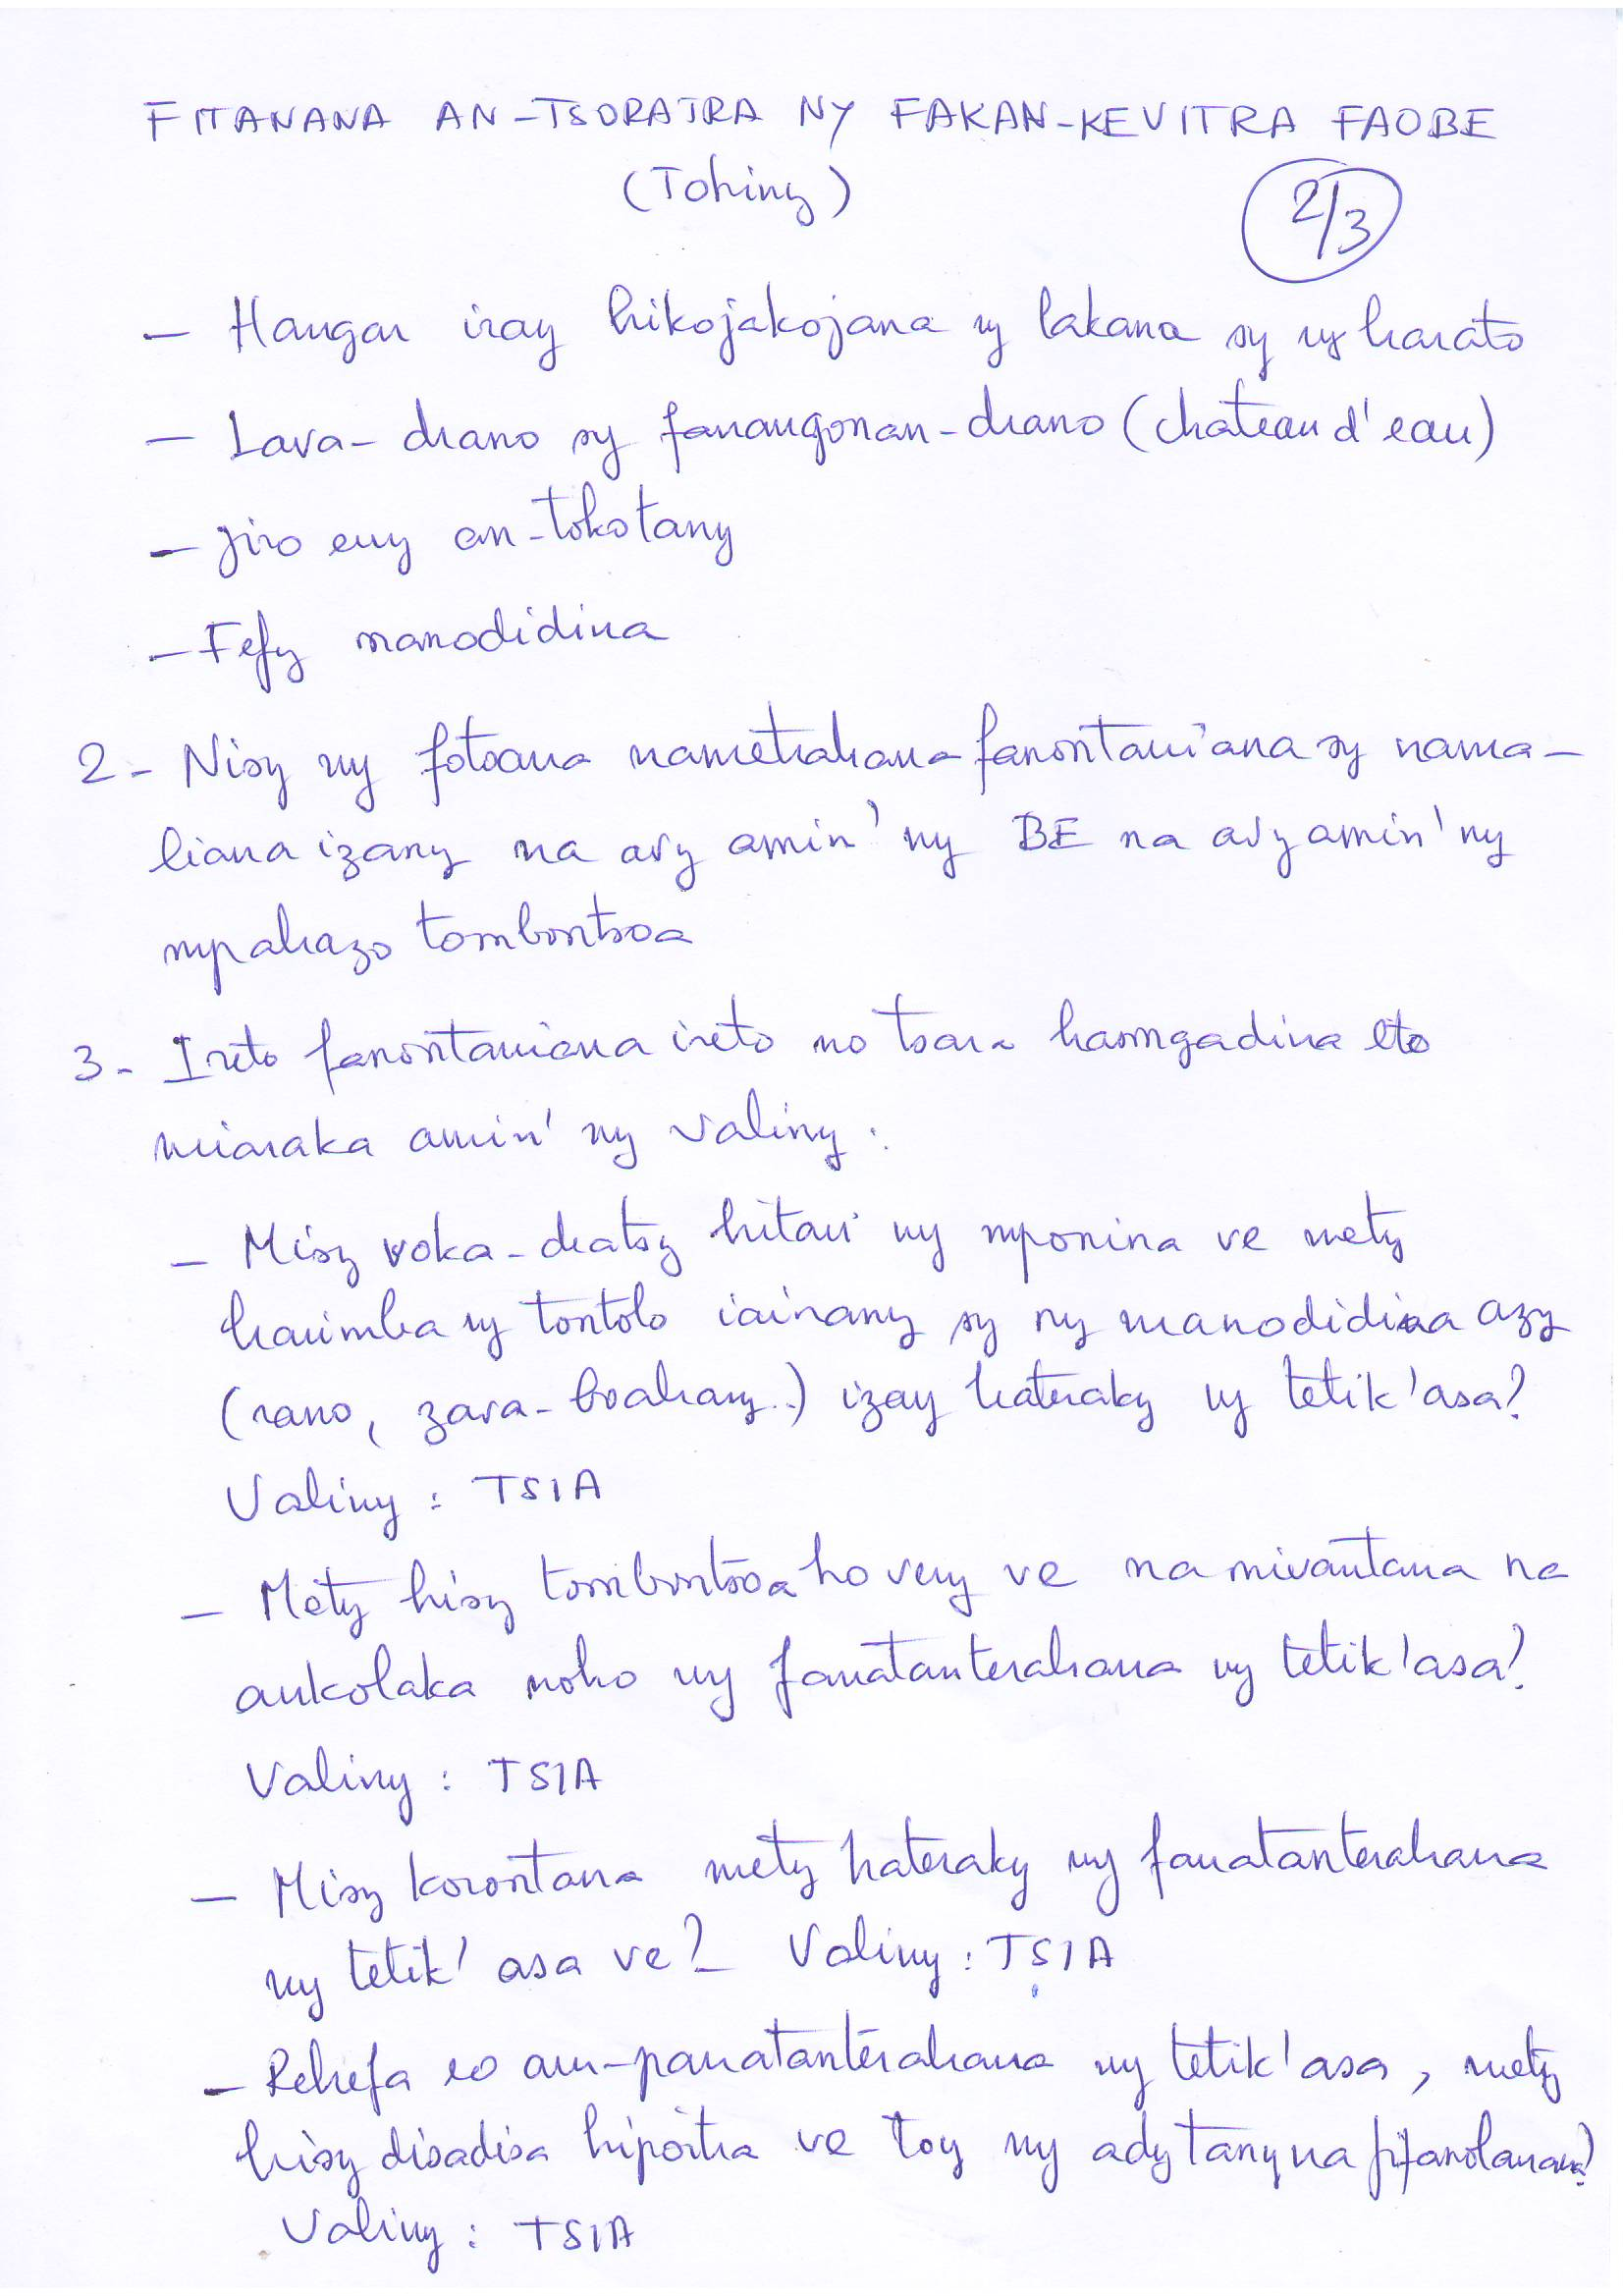 FITANANA AN-TSORATRA NY FAKAN-KEVITRA FAOBE
(Tohiny)
2/3
- Hangar iray hikojakojana ny lakana sy ny harato
- Lava-drano sy fanangonan-drano (chateau d'eau)
- Jiro eny an-tokotany
- Fefy manodidina
2- Nisy ny fotoana nametrahana fanontaniana sy nama-
liana izany na avy amin'ny BE na avy amin'ny
mpahazo tombontsoa
3- Ireto fanontaniana ireto no tsara hasongadina eto
miaraka amin'ny valiny :
- Misy voka-dratsy hitan' ny mponina ve mety
hanimba ny tontolo iainany sy ny manodidina azy
(rano, zava-boahary..) izay hateraky ny tetik'asa?
Valiny : TSIA
- Mety hisy tombontsoa ho very ve na mivantana na
ankolaka noho ny fanatanterahana ny tetik'asa?
Valiny : TSIA
- Misy korontana mety hateraky ny fanatanterahana
ny tetik'asa ve? Valiny : TSIA
- Rehefa eo am-panatanterahana ny tetik'asa, mety
hisy disadisa hipoitra ve toy ny ady tany na fifandanana?
Valiny : TSIA